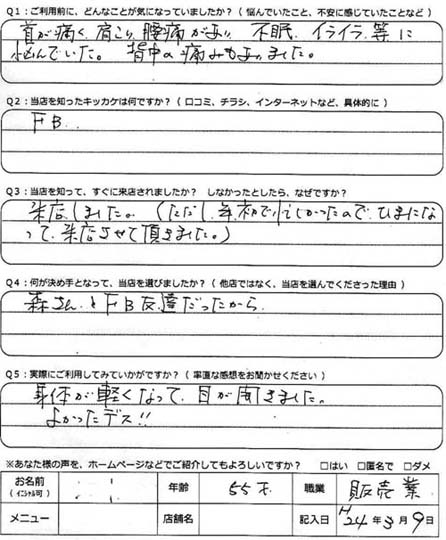 Q1：ご利用前に、どんなことが気になっていましたか？（ 悩んでいたこと、不安に感じていたことなど ）
首が痛く、肩こり、腰痛があり、不眠、イライラ、等に
悩んでいた。背中の痛みもありました。
Q2：当店を知ったキッカケは何ですか？（ 口コミ、チラシ、インターネットなど、具体的に ）
FB.
Q3：当店を知って、すぐに来店されましたか？　しなかったとしたら、なぜですか？
来店しました。（ただし、年初で忙しかったので、ひまにな
って、来店させて頂きました。）
Q4：何が決め手となって、当店を選びましたか？（ 他店ではなく、当店を選んでくださった理由 ）
森さんとFB友達だったから
Q5：実際にご利用してみていかがですか？（ 率直な感想をお聞かせください ）
身体が軽くなって、目が開きました。
よかったデス!!
※あなた様の声を、ホームページなどでご紹介してもよろしいですか？　□はい　□匿名で　□ダメ
お名前（イニシャル可）　年齢　55才　職業　販売業
メニュー　店舗名　記入日　H24年3月9日